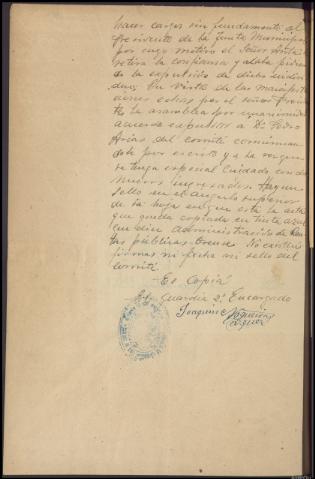 hacer cargos sin fundamento al
Presidente de la Junta Municipal
por cuyo motivo el Señor
retira la confianza y
de la expulsión de dicho individuo
duo; En vista de las manifestaciones
aciones echas por el señor
te la asamblea por unanimidad
acuerda expulsar a D. Pedro
Arias del comité
dole por escrito y a la vez que
se tenga especial cuidado con los
nuevos ingresados. Hay un
sello en el angulo superior
de la hoja en que esta la acta
que queda copiado en tinta azul
que dice Administración de Ren
tas públicas-Orense
firmas ni fecha ni sello del
comité.
Es Copia
El Guardia 2º Encargado
Joaquin Nogueiras